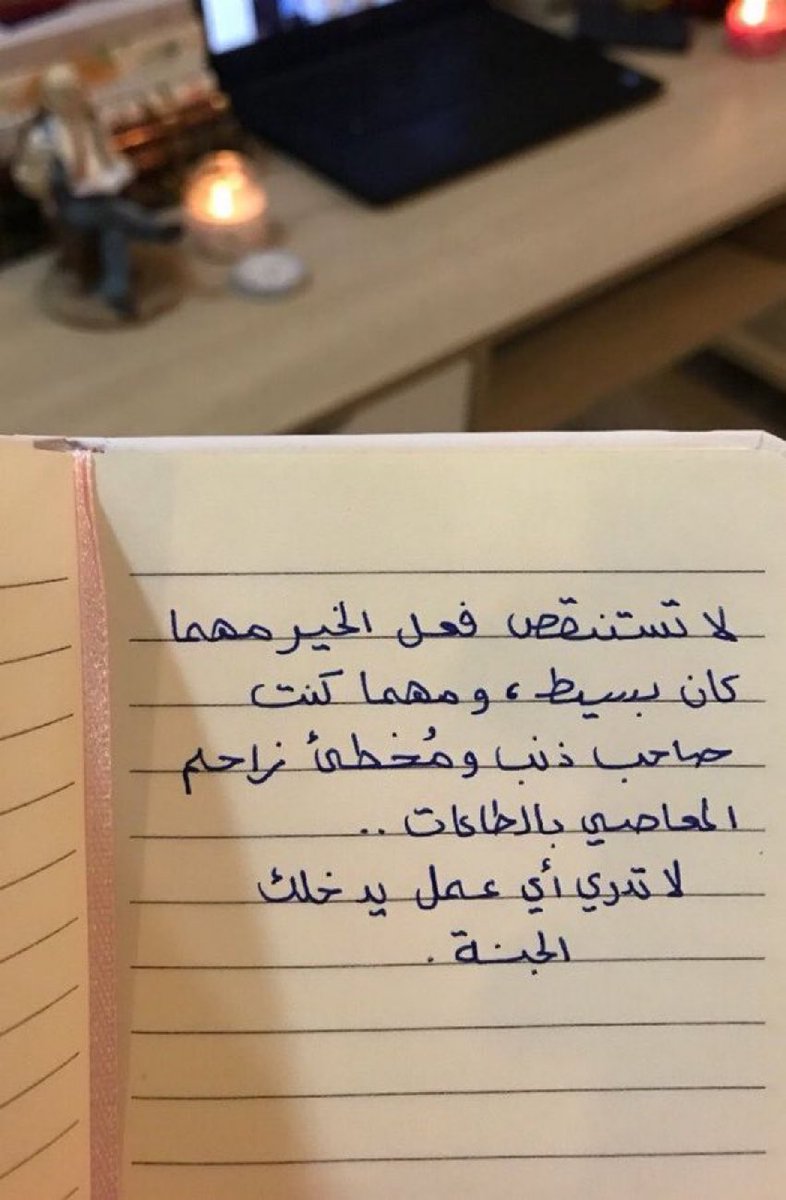 لا تستنقص فعل الخير مهما
كان بسيط، ومهما كنت
صاحب ذنب ومُخطئ زاحم
المعاصي بالطاعات ..
لا تدري أي عمل يدخلك
الجنة .